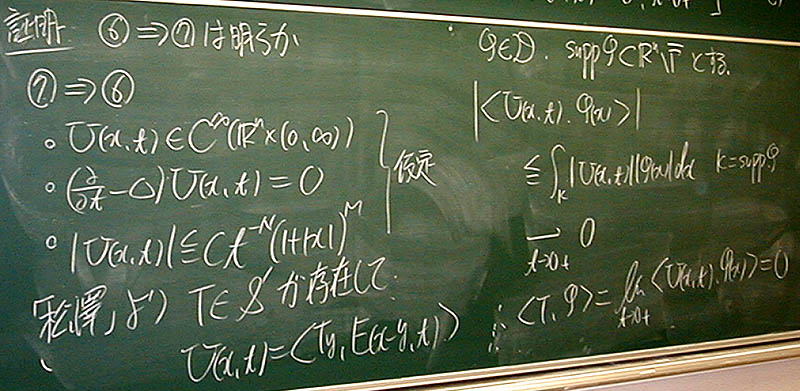 証明 ⑥ ⇒ ⑦ は明らか
⑦ ⇒ ⑥
◦ U(x,t) ∈ C^∞(ℝ^n × (0,∞))
◦ (∂/∂t − △) U(x,t) = 0
◦ |U(x,t)| ≦ C t^{-N} (1+|x|)^M
仮定
「松澤」より T ∈ 𝒮' が存在して
U(x,t) = <T_y, E(x−y,t)>
φ ∈ 𝒟. supp φ ⊂ ℝ^n \ Γ̄ とする.
|<U(x,t), φ(x)>|
≦ ∫_K |U(x,t)||φ(x)| dx K = supp φ
⟶ 0
t→0+
∴ <T, φ> = lim_{t→0+} <U(x,t), φ(x)> = 0